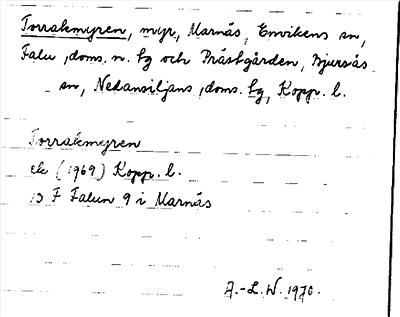 Torrakmyren, myr, Marnäs, Envikens sn,
Falu doms. n. tg och Prästgården, Bjursås
sn, Nedansiljans doms. tg, Kopp. l.
Torrakmyren
ek (1969) Kopp. l.
13 F Falun 9 i Marnäs
A.-L. W. 1970.